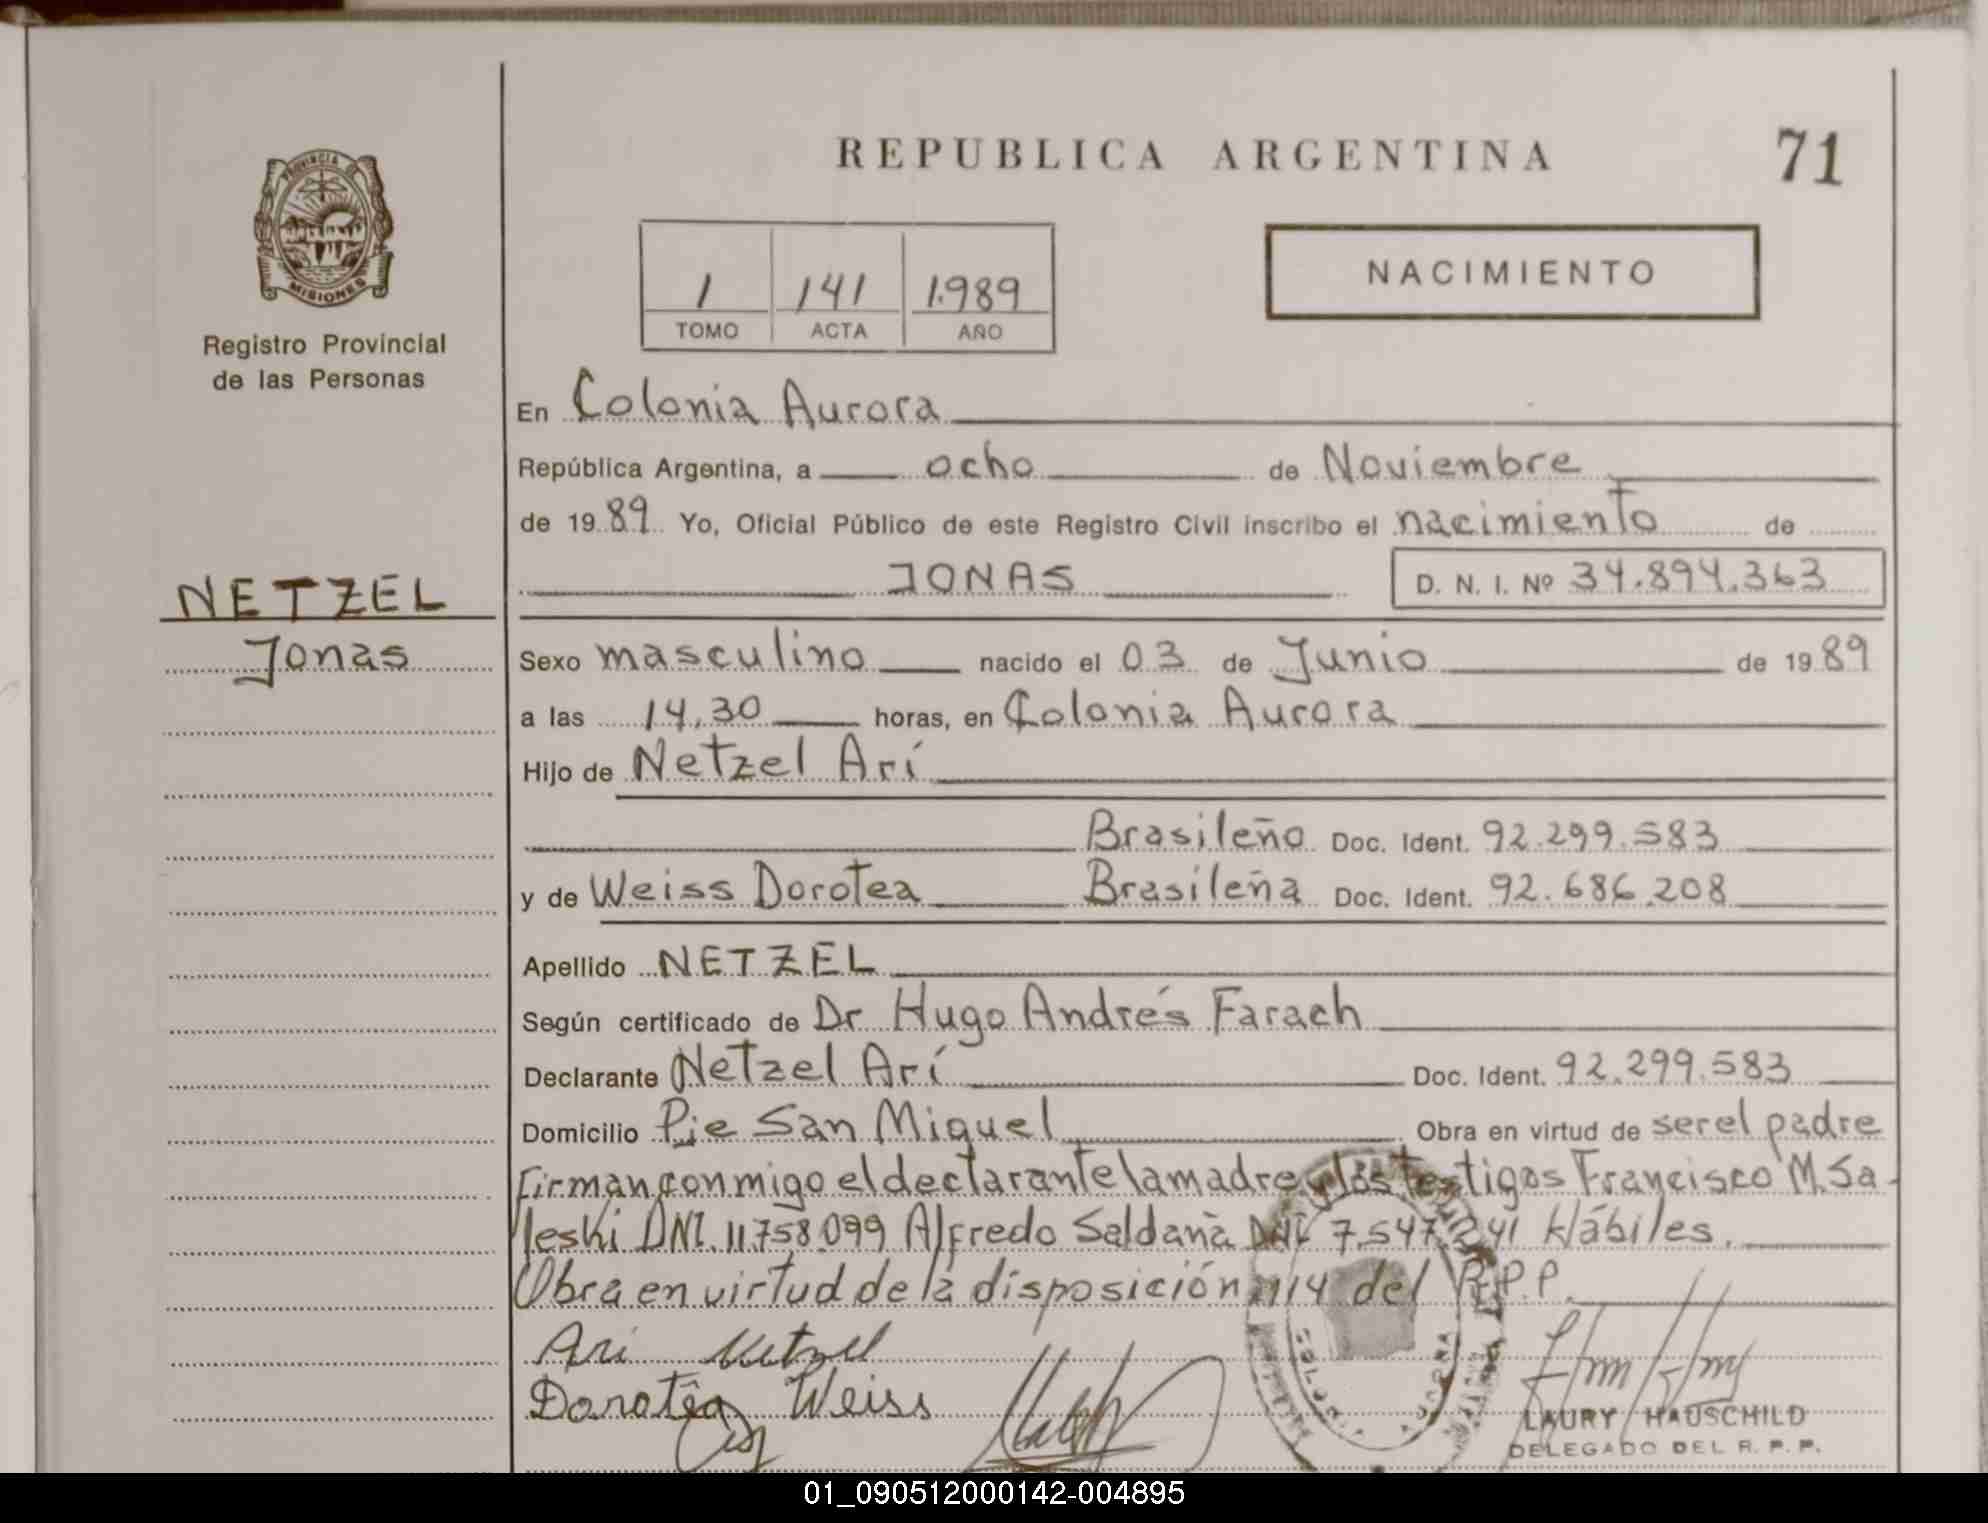 REPUBLICA ARGENTINA
71
PROVINCIA DE
MISIONES
Registro Provincial
de las Personas
1 141 1.989
TOMO ACTA AÑO
NACIMIENTO
En Colonia Aurora
República Argentina, a ocho de Noviembre
de 1989 Yo, Oficial Público de este Registro Civil inscribo el nacimiento de
JONAS D. N. I. Nº 34.894.363
NETZEL
Jonas
Sexo masculino nacido el 03 de Junio de 1989
a las 14,30 horas, en Colonia Aurora
Hijo de Netzel Arí
Brasileño Doc. Ident. 92.299.583
y de Weiss Dorotea Brasileña Doc. Ident. 92.686.208
Apellido NETZEL
Según certificado de Dr Hugo Andrés Farach
Declarante Netzel Arí Doc. Ident. 92.299.583
Domicilio Pje San Miguel Obra en virtud de ser el padre
Firman conmigo el declarante la madre y los testigos Francisco M. Sa-
leski DNI. 11.758.099 Alfredo Saldaña DNI 7.547.241 Hábiles.
Obra en virtud de la disposición 114 del R.P.P.
Ari Netzel
Dorotêa Weiss
LAURY HAUSCHILD
DELEGADO DEL R. P. P.
01_090512000142-004895